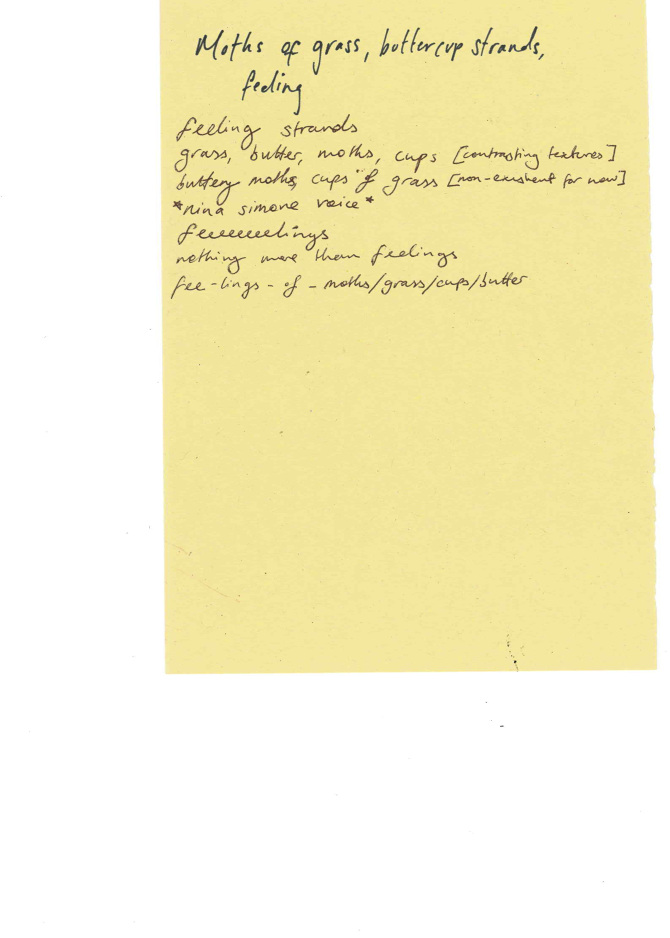 Moths of grass, buttercup strands,
feeling
feeling strands
grass, butter, moths, cups [contrasting textures]
buttery moths, cups of grass [non-existent for now]
*nina simone voice*
feeeeeeelings
nothing more than feelings
fee-lings-of-moths/grass/cups/butter